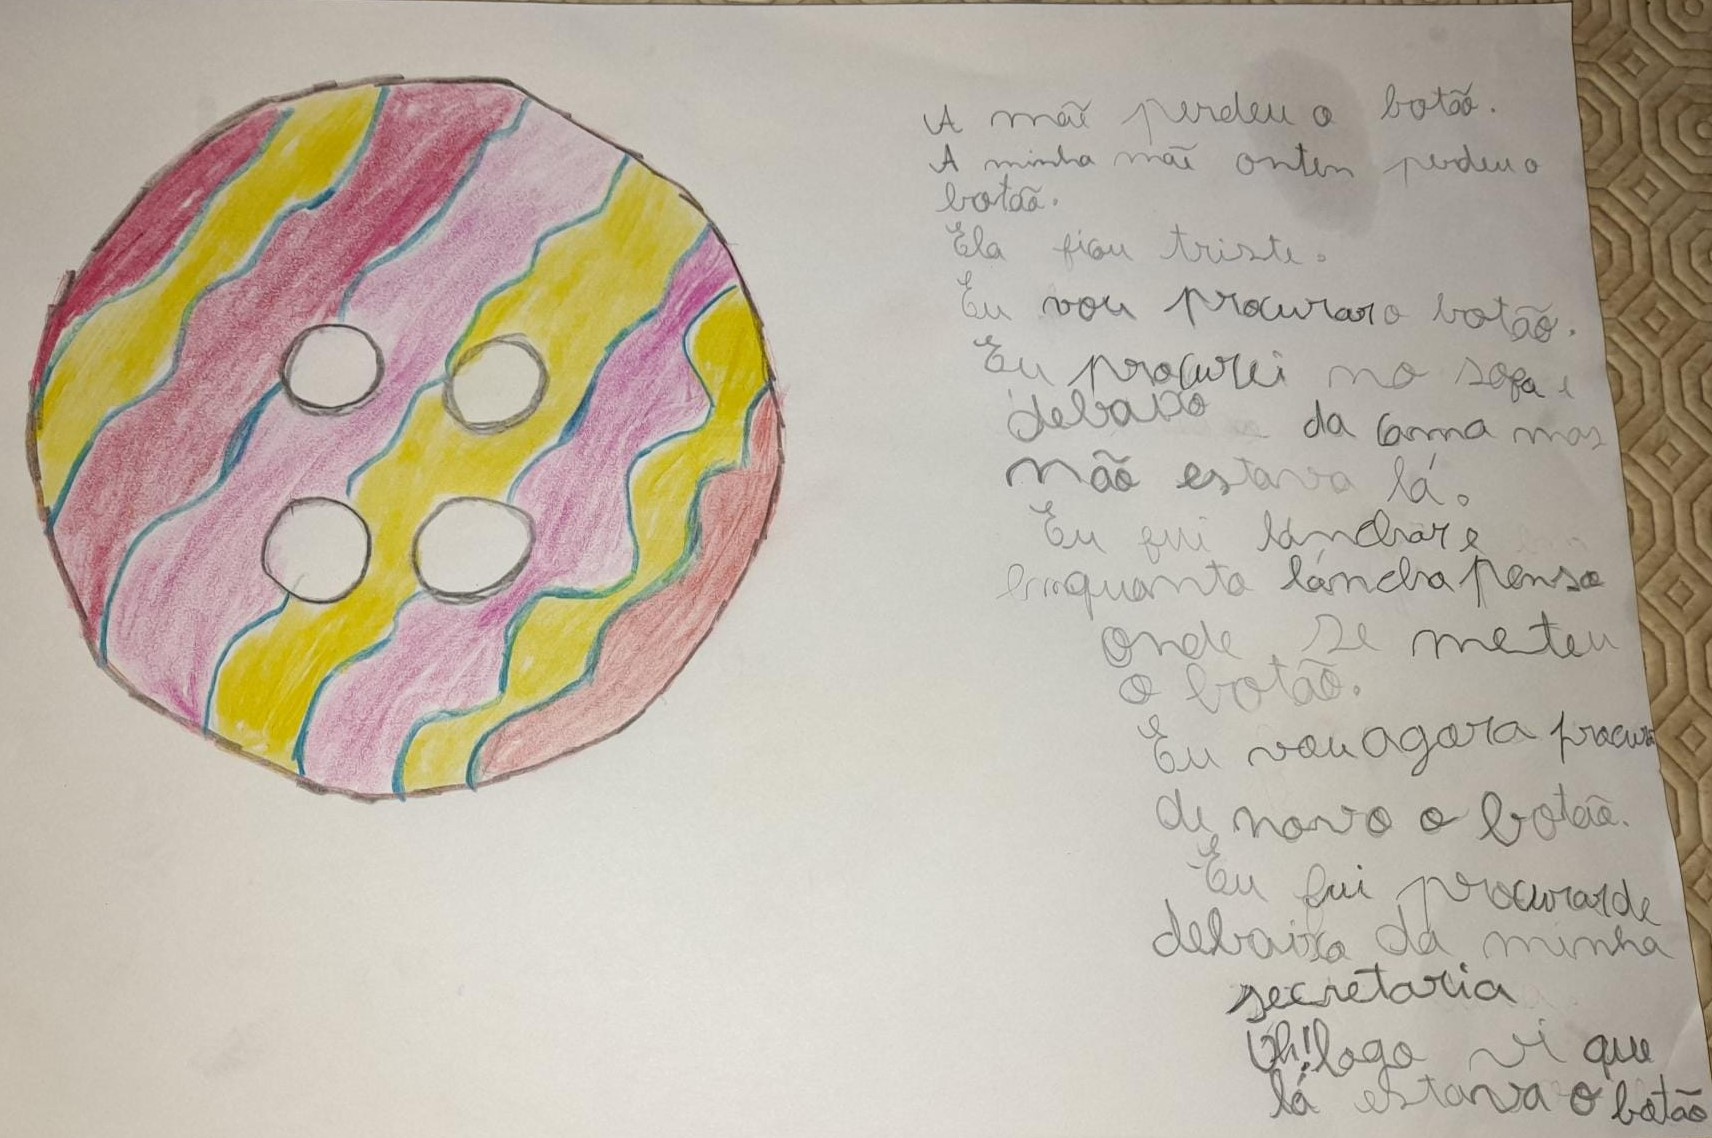 A mãe perdeu o botão.
A minha mãe ontem perdeu o
botão.
Ela ficou triste.
Eu vou procurar o botão.
Eu procurei no sofa e
debaixo da cama mas
não estava lá.
Eu fui lánchar e
enquanto láncha penso
onde se meteu
o botão.
Eu vou agora procurar
de novo o botão.
Eu fui procurar de
debaixo da minha
secretaria
Oh! logo vi que
lá estava o botão